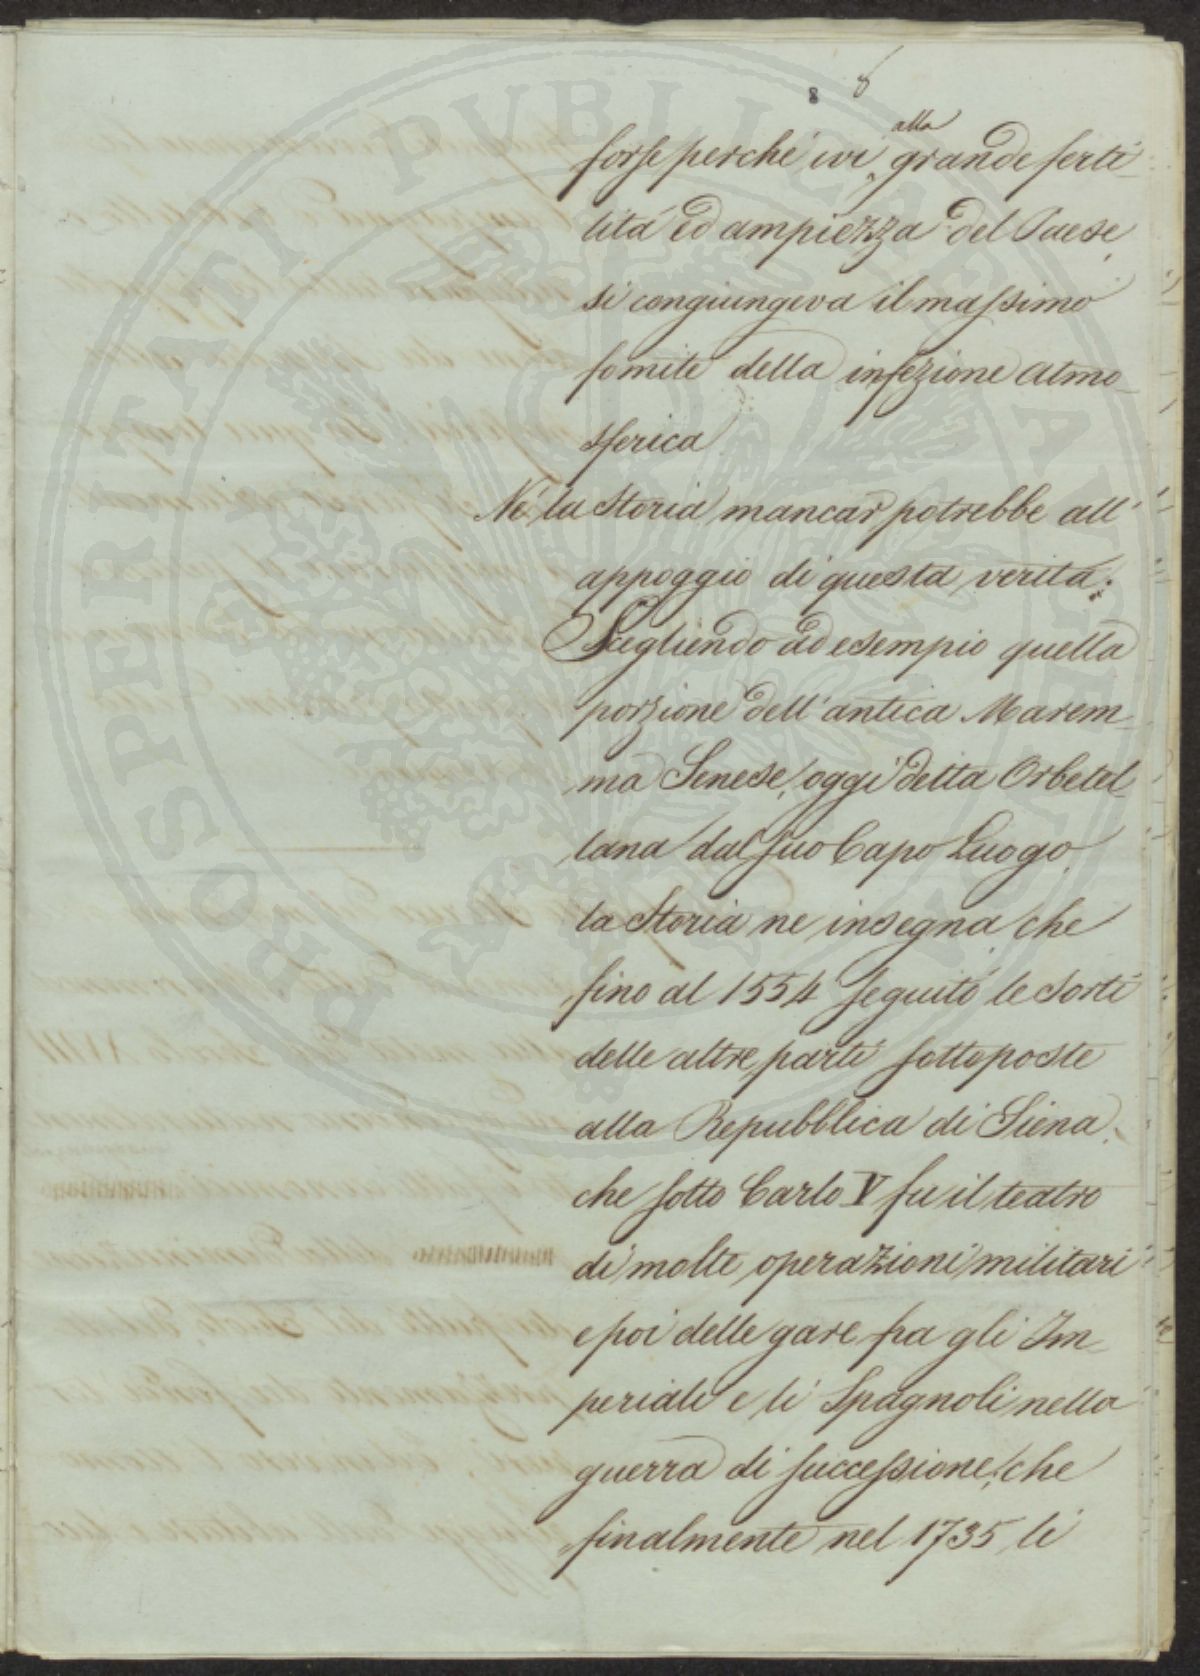 8 8
alla
forse perché ivi grande ferti-
lità ed ampiezza del Paese,
si congiungeva il massimo
fomite della infezione atmo-
sferica
Né la Storia mancar potrebbe all'
appoggio di questa verità.
Scegliendo ad esempio quella
porzione dell'antica Marem-
ma Senese, oggi detta Orbetel-
lana dal suo Capo Luogo,
la Storia ne insegna, che
fino al 1554 seguitò le sorti
delle altre parti sottoposte
alla Repubblica di Siena,
che sotto Carlo V fu il teatro
di molte operazioni militari
e poi delle gare fra gli Im-
periali e li Spagnoli nella
guerra di successione, che
finalmente nel 1735 li
PROSPERITATI PUBLICAE AUGENDAE